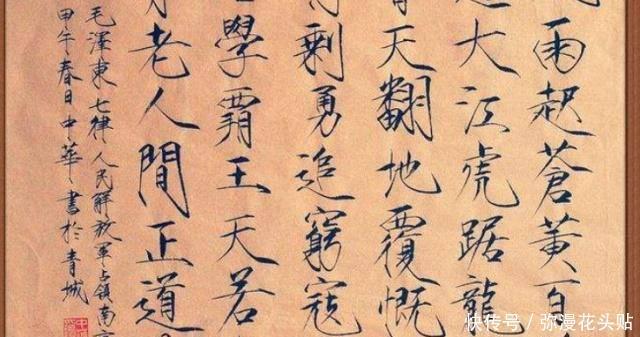 雨起蒼黃百
過大江虎踞龍
天翻地覆慨
剩勇追窮寇
學霸王天若
老人間正道
毛澤東七律人民解放軍占領南京
甲午春日中華書於青城
快传号 / 弥漫花头贴